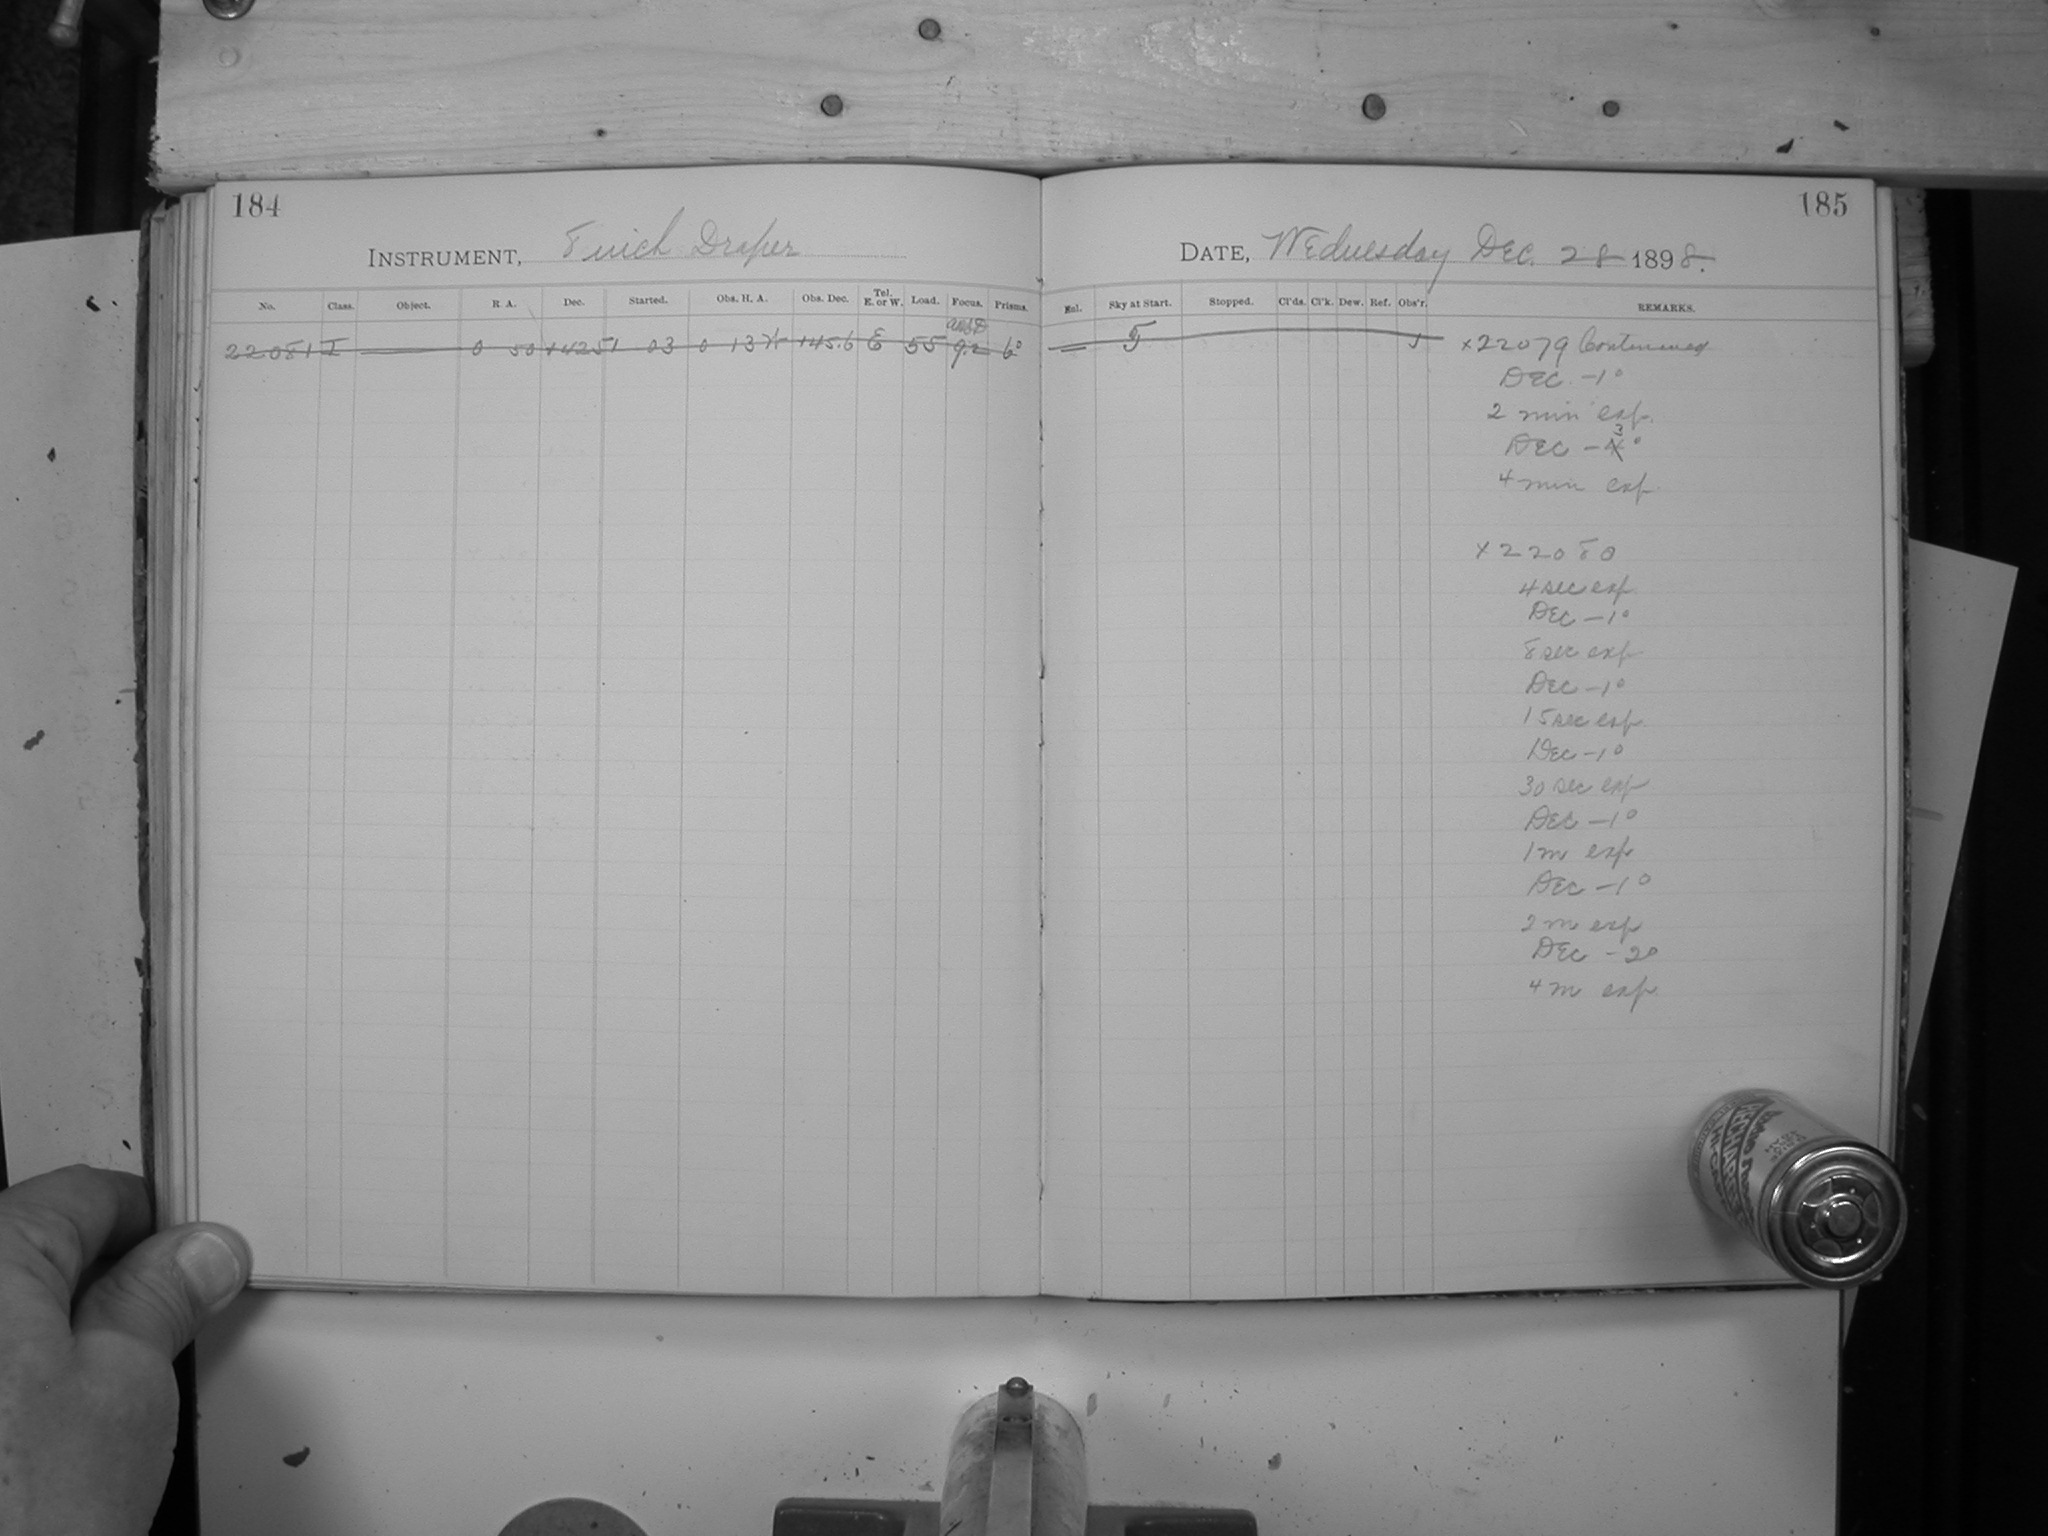 184
INSTRUMENT, 8 inch Draper
No. Class. Object. R A. Dec. Started. Obs. H. A. Obs. Dec. Tel. E. or W. Load. Focus. Prisms.
22081 I 0 50 +42 51 03 0 13 +45.6 E 55 9.2 6°
185
DATE, Wednesday Dec. 28 1898.
Enl. Sky at Start. Stopped. Cl'ds. Cl'k. Dew. Ref. Obs'r. REMARKS.
5
×22079 Continued
Dec. -1°
2 min exp.
Dec -3°
4 min exp.
×22080
4 sec exp.
Dec -1°
8 sec exp
Dec -1°
15 sec exp.
Dec -1°
30 sec exp
Dec -1°
1 m exp
Dec -1°
2 m exp
Dec -2°
4 m exp.